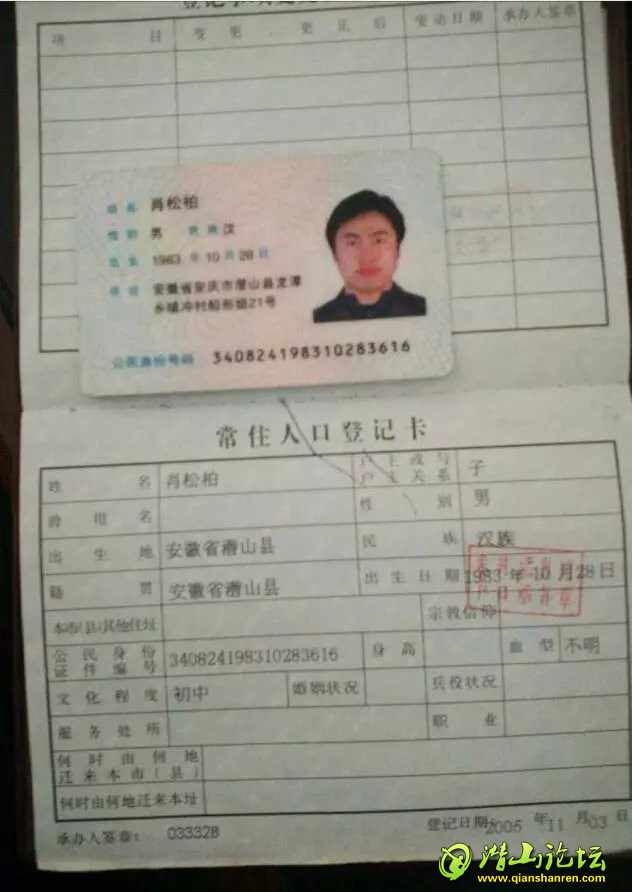 项目 变更、更正后 变动日期 承办人签章
姓名 肖松柏
性别 男 民族 汉
出生 1983年10月28日
住址 安徽省安庆市潜山县龙潭
乡埭冲村船形组21号
公民身份号码 340824198310283616
常住人口登记卡
姓名 肖松柏 户主或与户主关系 子
曾用名 性别 男
出生地 安徽省潜山县 民族 汉族
籍贯 安徽省潜山县 出生日期 1983年10月28日
本市(县)其他住址 宗教信仰
公民身份证件编号 340824198310283616 身高 血型 不明
文化程度 初中 婚姻状况 兵役状况
服务处所 职业
何时由何地迁来本市(县)
何时由何地迁来本址
承办人签章: 033328 登记日期: 2005年11月03日
潜山论坛
www.qianshanren.com